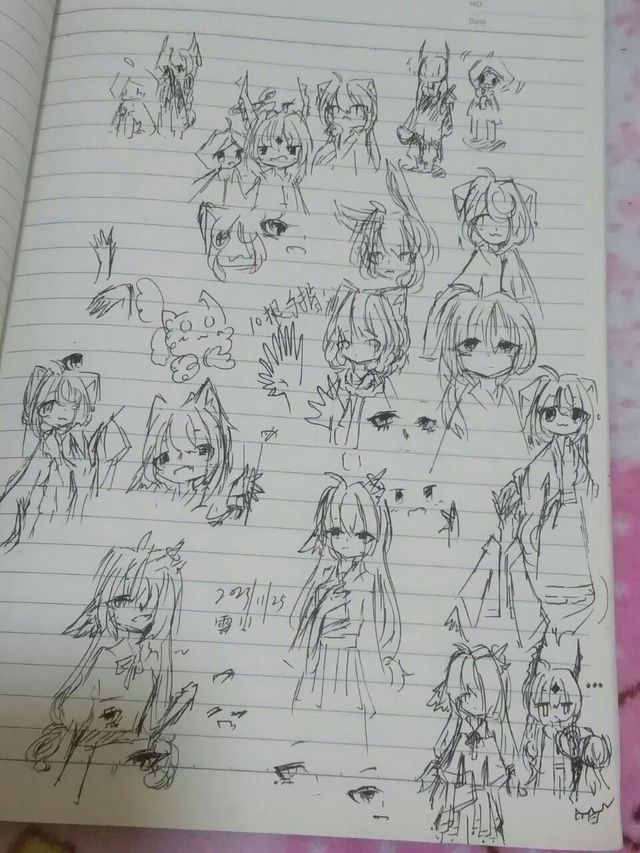 NO
Date
10根手指
2023/11/25